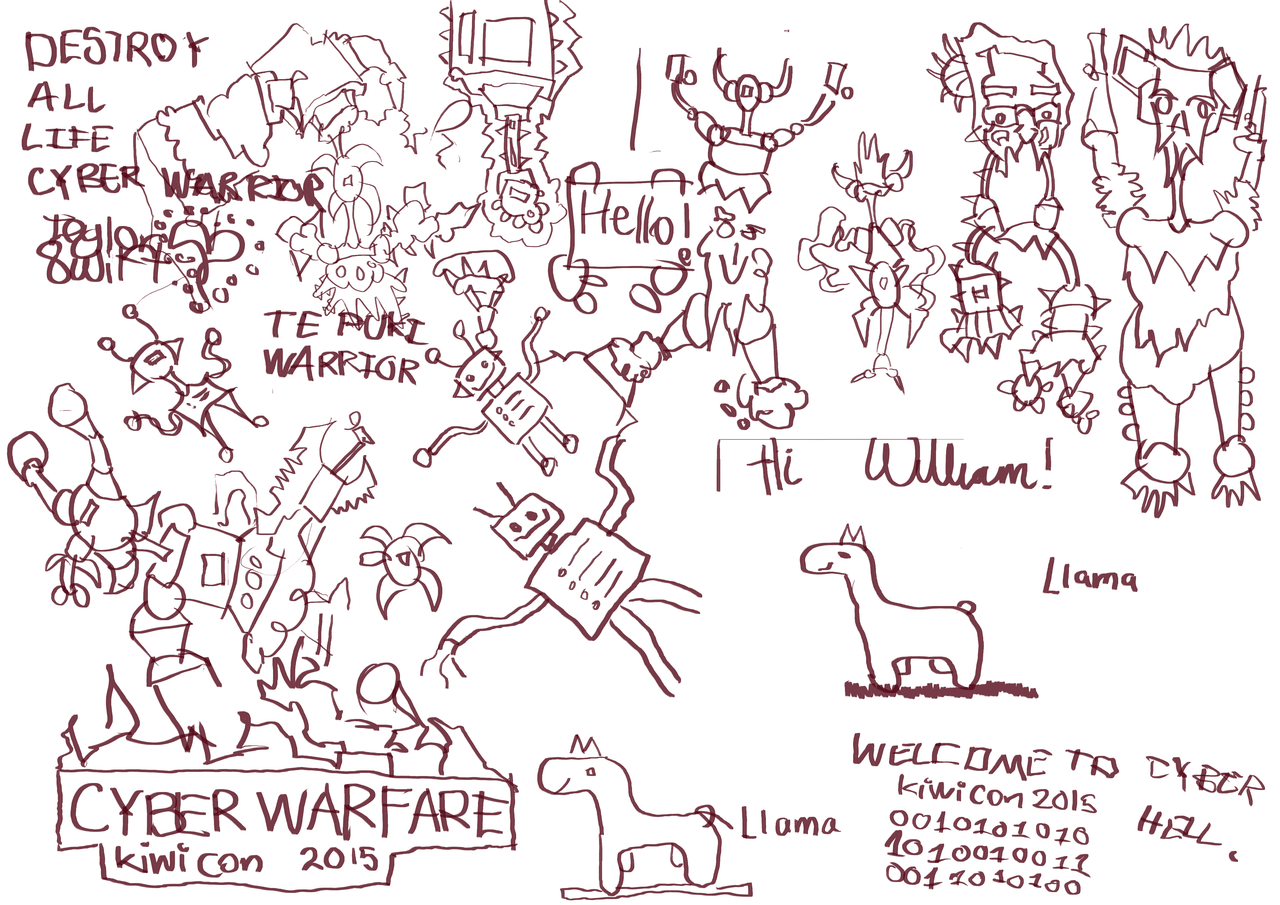 DESTROY
ALL
LIFE
CYBER WARRIOR
Taylor
Swift
TE PUKI
WARRIOR
Hello!
Hi William!
Llama
CYBER WARFARE
kiwi con 2015
Llama
WELCOME TO CYBER
HELL.
kiwi con 2015
0010101010
1010010011
0011010100